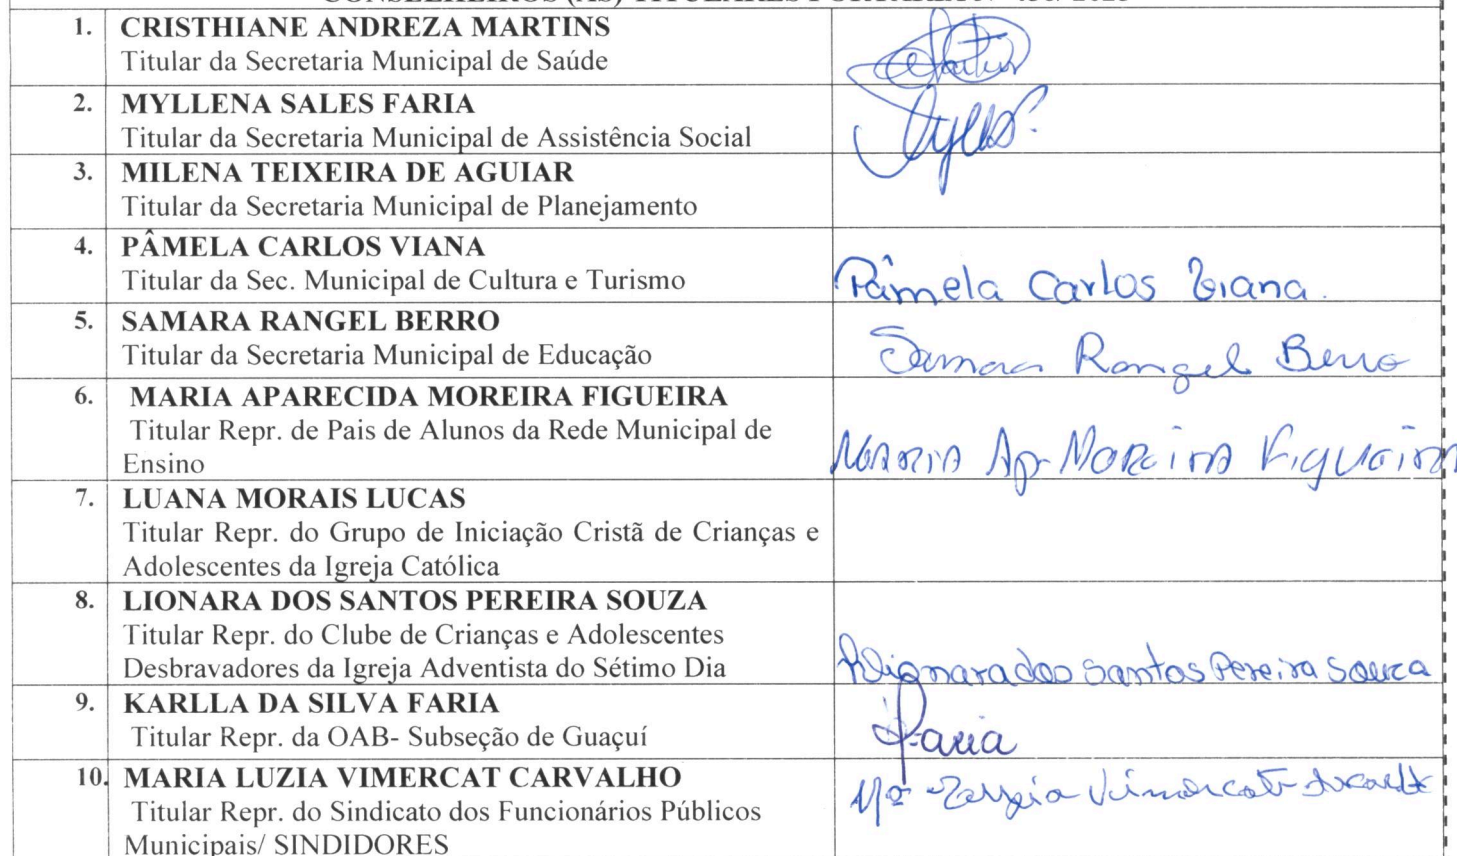 CONSELHEIROS (AS) TITULARES PORTARIA Nº
1. CRISTHIANE ANDREZA MARTINS
Titular da Secretaria Municipal de Saúde
2. MYLLENA SALES FARIA
Titular da Secretaria Municipal de Assistência Social
3. MILENA TEIXEIRA DE AGUIAR
Titular da Secretaria Municipal de Planejamento
4. PÂMELA CARLOS VIANA
Titular da Sec. Municipal de Cultura e Turismo
Pâmela Carlos Viana.
5. SAMARA RANGEL BERRO
Titular da Secretaria Municipal de Educação
Samara Rangel Berro
6. MARIA APARECIDA MOREIRA FIGUEIRA
Titular Repr. de Pais de Alunos da Rede Municipal de
Ensino
Maria Ap. Moreira Figueira
7. LUANA MORAIS LUCAS
Titular Repr. do Grupo de Iniciação Cristã de Crianças e
Adolescentes da Igreja Católica
8. LIONARA DOS SANTOS PEREIRA SOUZA
Titular Repr. do Clube de Crianças e Adolescentes
Desbravadores da Igreja Adventista do Sétimo Dia
dos Santos Pereira Souza
9. KARLLA DA SILVA FARIA
Titular Repr. da OAB- Subseção de Guaçuí
Faria
10. MARIA LUZIA VIMERCAT CARVALHO
Titular Repr. do Sindicato dos Funcionários Públicos
Municipais/ SINDIDORES
Mª Luzia Vimercat